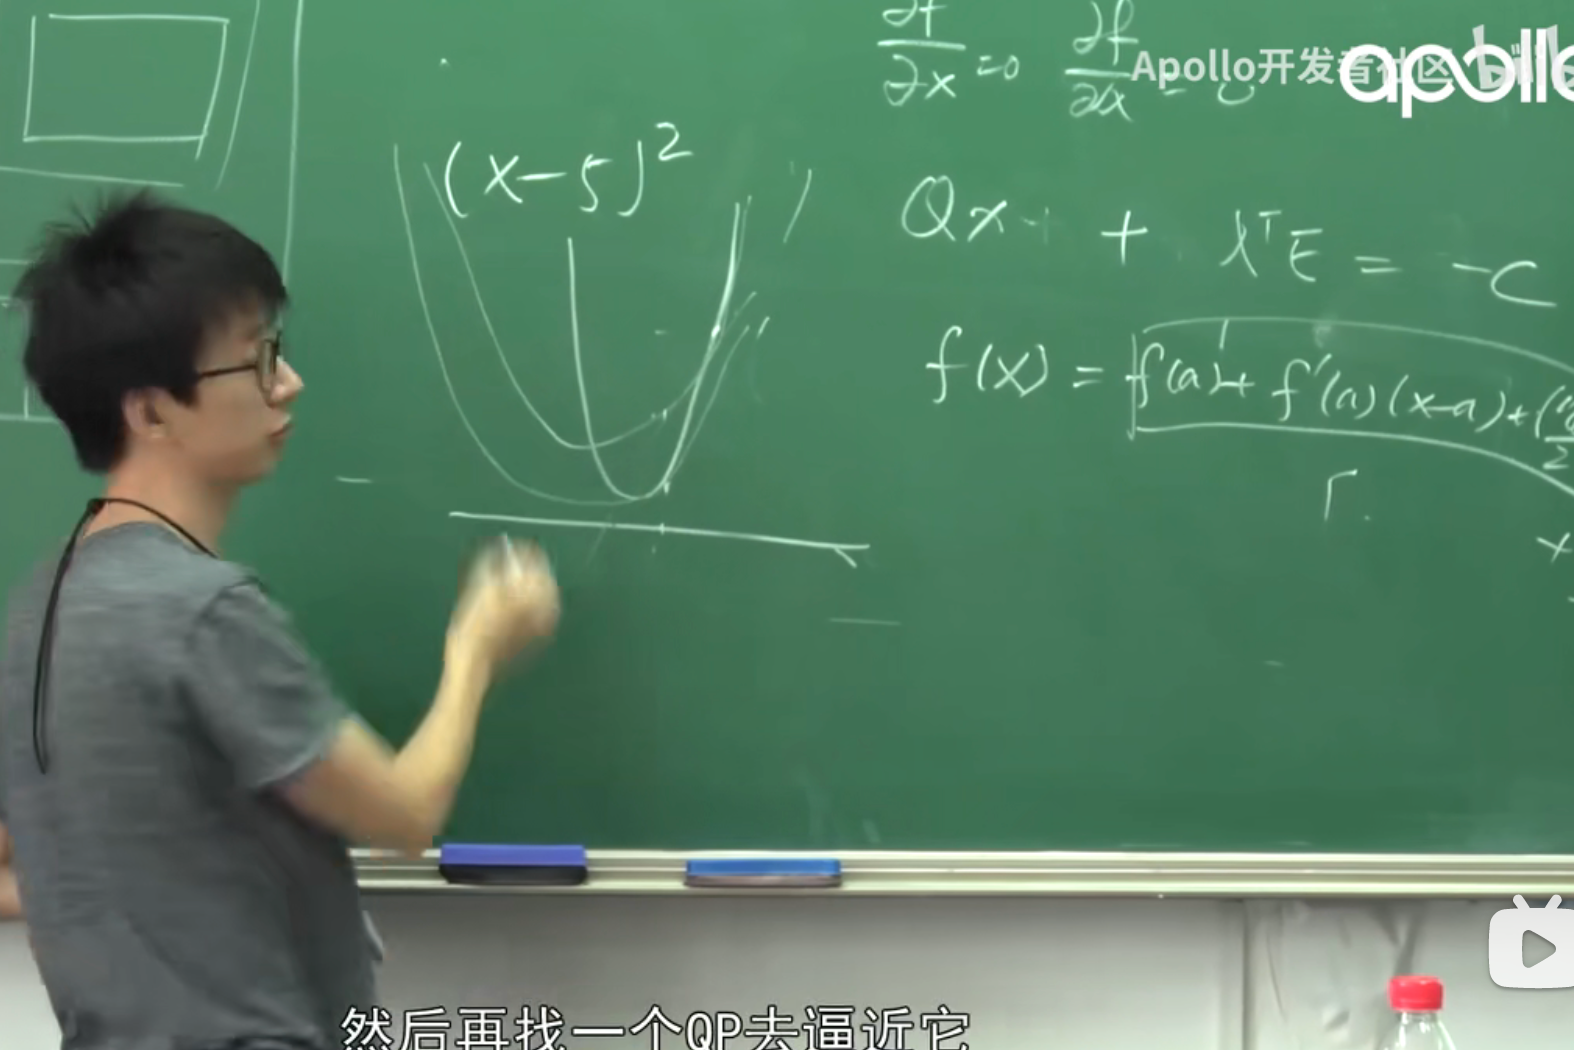 ∂f/∂x =0 ∂f/∂λ = 0
Apollo开发者社区
apollo
(x-5)²
Qx + λᵀE = -C
f(x) = f(a)+ f'(a)(x-a)+
然后再找一个QP去逼近它